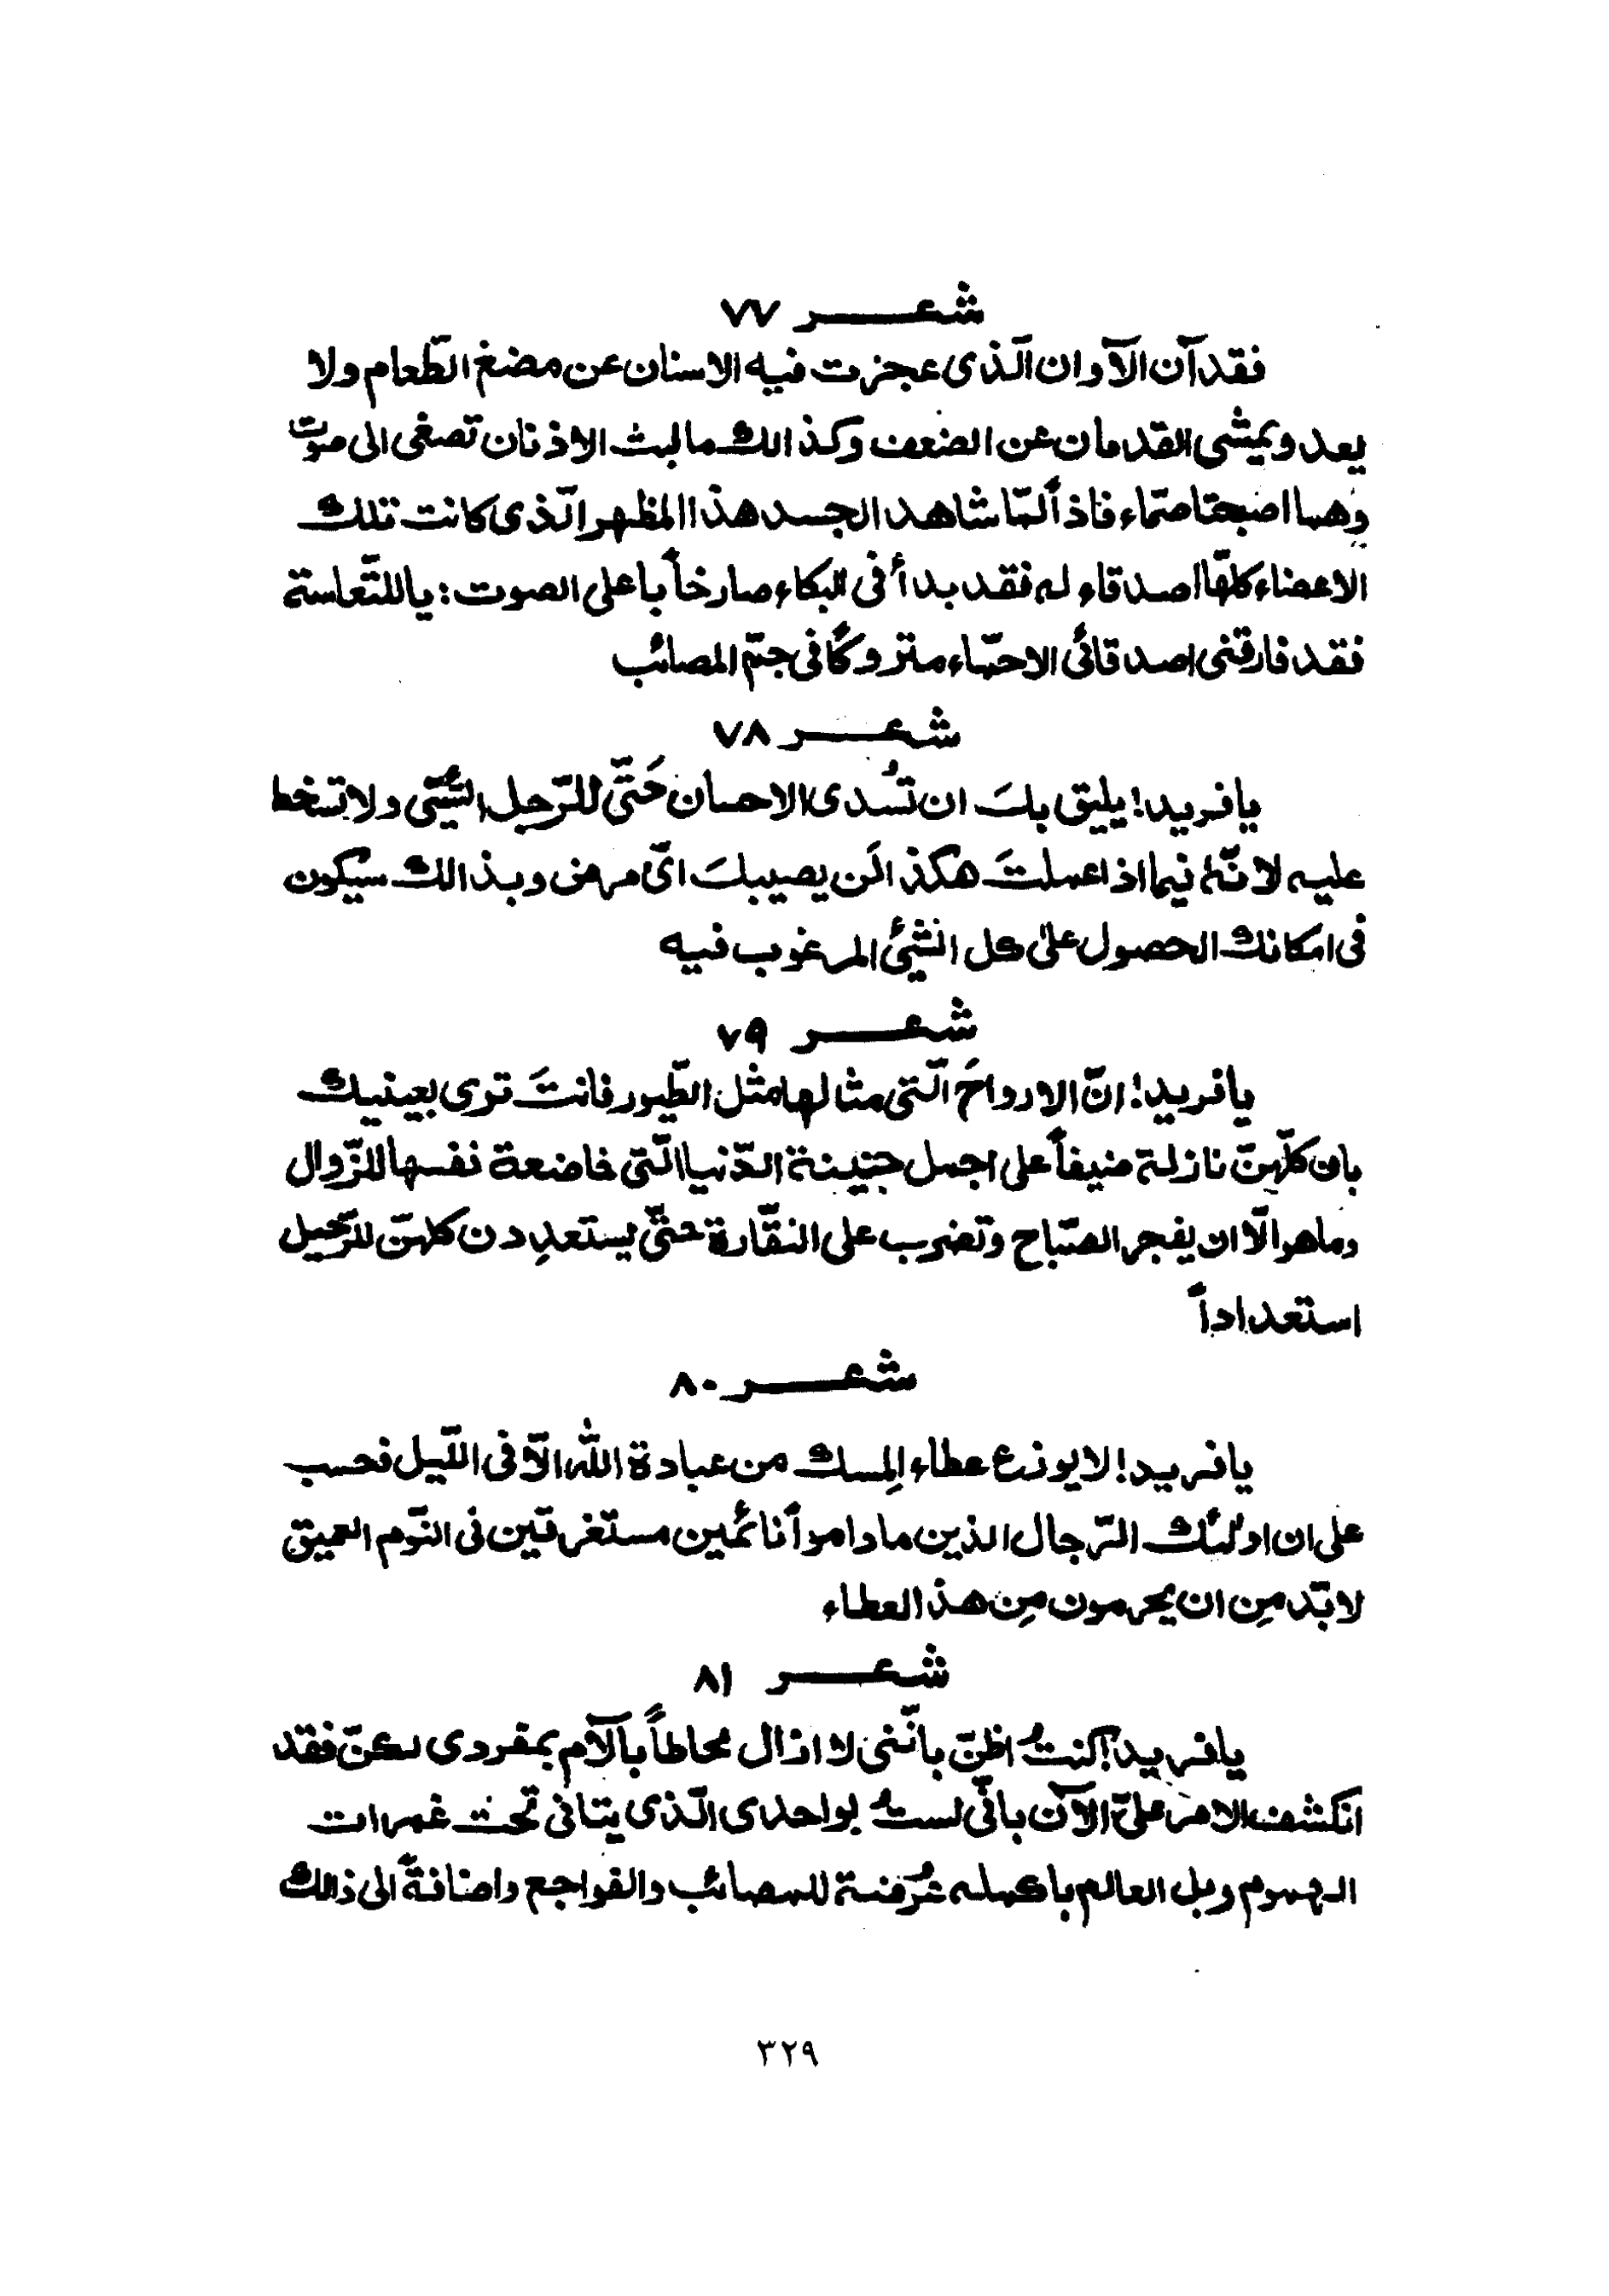 شعر ٧٧
فقد آن الآوان الّذى عجزت فيه الاسنان عن مضغ الطّعام ولا
يعد ويمشى القدمان عن الضعف وكذالك ما لبث الاذنان تصغى الى صوت
وهما اصبحتا صمّاء فاذاً لمّا شاهد الجسد هذا المظهر الّذى كانت تلك
الاعضاء كلهّا اصدقاء له فقد بدأ فى البكاء صارخاً باعلى الصوت: ياللتّعاسة
فقد فارقنى اصدقائى الاحبّاء متروكًا فى جمّ المصائب
شعر ٧٨
يا فريد! يليق بكَ ان تُسدى الاحسان حَتّى للرّجل السّيّئ ولا تسخط
عليه لانّه فيما اذا عملتَ هكذا لَن يصيبكَ اىّ مرض وبذالك سيكون
فى امكانك الحصول علىٰ كل الشّيئ المرغوب فيه
شعر ٧٩
يا فريد! انّ الارواحَ الّتى مثالها مثل الطّيور فانتَ ترى بعينيك
بان كلّهنّ نازلة ضيفاً على اجمل جنينة الدّنيا الّتى خاضعة نفسها للزّوال
وما هو الّا ان يفجر الصّباح وتضرب على النقّارة حتّى يستعدِدن كلهنّ للرّحيل
استعداداً
شعر ٨٠
يا فريد! لا يوزع عطاء المِسك من عبادة الله الّا فى اللّيل فحسب
على ان اولٰئك الرّجال الذين ما داموا نائمين مستغرقين فى النّوم العميق
لا بدّ مِن ان يحرمون مِن هذا العطاء
شعر ٨١
يا فريد! كنتُ اظنّ باننّى لا ازال محاطاً بالآلام بمفردى لكنّ فقد
انكشف الامر علىّ الآن بانّى لستُ بواحدى الّذى يتانى تحت غمرات
الهموم وبل العالم باكمله عُرضة للمصائب والفواجع واضافةً الى ذالك
٣٢٩